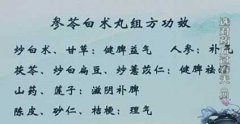 参苓白术丸组方功效
炒白术、甘草：健脾益气 人参：补气
茯苓、炒白扁豆、炒薏苡仁：健脾祛
山药、莲子：滋阴补脾
陈皮、砂仁、桔梗：理气